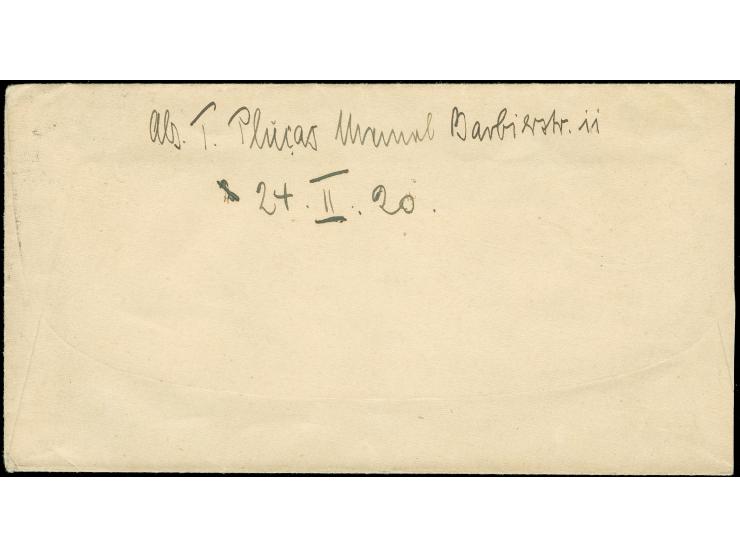 Abs. T. Pluças Memel Barbierstr. 11
24. II. 20.